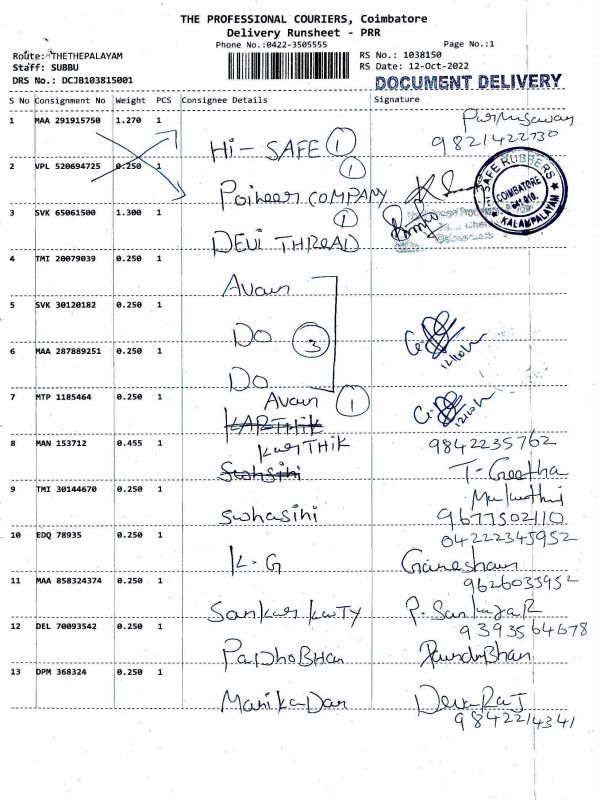 THE PROFESSIONAL COURIERS, Coimbatore
Delivery Runsheet - PRR
Phone No.:0422-3505555
Page No.:1
Route: THETHEPALAYAM
RS No.: 1038150
Staff: SUBBU
RS Date: 12-Oct-2022
DRS No.: DCJB103815001
DOCUMENT DELIVERY
S No Consignment No Weight PCS Consignee Details Signature
1 MAA 291915750 1.270 1
9821422730
Hi-SAFE 1
2 VPL 520694725 0.250 1
1
Poineer COMPANY
SAFE RUSHERS
COIMBATORE
KALAMPALAYAM
3 SVK 65061500 1.300 1
1
DEVI THREAD
4 TMI 20079039 0.250 1
Avaur
5 SVK 30120182 0.250 1
Do 3
6 MAA 287889251 0.250 1
Do
7 MTP 1185464 0.250 1
Avaur 1
KARTHIK
8 MAN 153712 0.455 1
KarTHiK
9842235762
Swhasini
T-Geetha
9 TMI 30144670 0.250 1
Swhasini
9677502110
10 EDQ 78935 0.250 1
04222345952
K.G
Ganesham
11 MAA 858324374 0.250 1
9626035952
Sankar kuTY
P.Sankar
12 DEL 70093542 0.250 1
9393564678
PaDhoBHan
13 DPM 368324 0.250 1
ManikaDan
DevaRaJ
9842214341